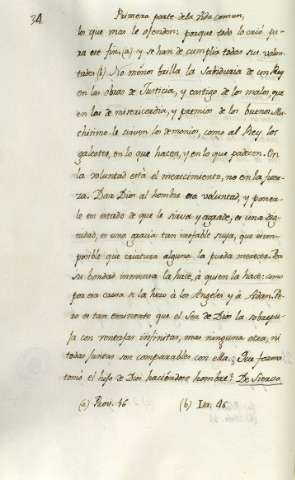 34 Primera parte de la vida comun,
lo que mas le ofenden: porque todo lo crió pa
ra ese fin, (a) y se han de cumplir todas sus volun
tades (b). No menos brilla la Sabiduria de un Rey
en las obras de Justicia, y castigo de los malos, que
en las de misericordia, y premios de los buenos. Mu
chisimo le sirven los demonios, como al Rey los
galeotes, en lo que hacen, y en lo que padecen. En
la voluntad está el merecimiento, no en la fuer
za. Dar Dios al hombre esa voluntad, y poner
lo en estado de que le sirva y agrade, es una dig
nidad, es una gracia tan inefable suya, que es im
posible que criatura alguna la pueda merecer. Por
su bondad inmensa la hace, à quien la hace: como
por esa causa la hizo à los Angeles y à Adan. Pe
ro es tan eminente que el Ser de Dios la sobrepu
ja con ventajas infinitas, mas ninguna otra, ni
todas juntas son comparables con ella. ¿Que forma
tomó el hijo de Dios haciendose hombre? De Siervo.
(a) Prov. 16 (b) Isa. 46